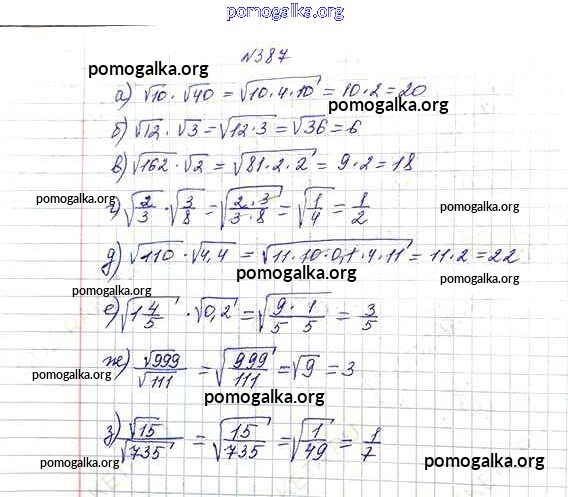 pomogalka.org
№387
pomogalka.org
а) √10 · √40 = √(10·4·10) = 10·2 = 20
pomogalka.org
б) √12 · √3 = √(12·3) = √36 = 6
pomogalka.org
в) √162 · √2 = √(81·2·2) = 9·2 = 18
pomogalka.org
г) √(2/3) · √(3/8) = √((2·3)/(3·8)) = √(1/4) = 1/2
pomogalka.org
pomogalka.org
д) √110 · √4,4 = √(11·10·0,1·4·11) = 11·2 = 22
pomogalka.org
pomogalka.org
pomogalka.org
е) √(1 4/5) · √0,2 = √(9/5 · 1/5) = 3/5
pomogalka.org
ж) √999/√111 = √(999/111) = √9 = 3
pomogalka.org
pomogalka.org
з) √15/√735 = √(15/735) = √(1/49) = 1/7
pomogalka.org
pomogalka.org